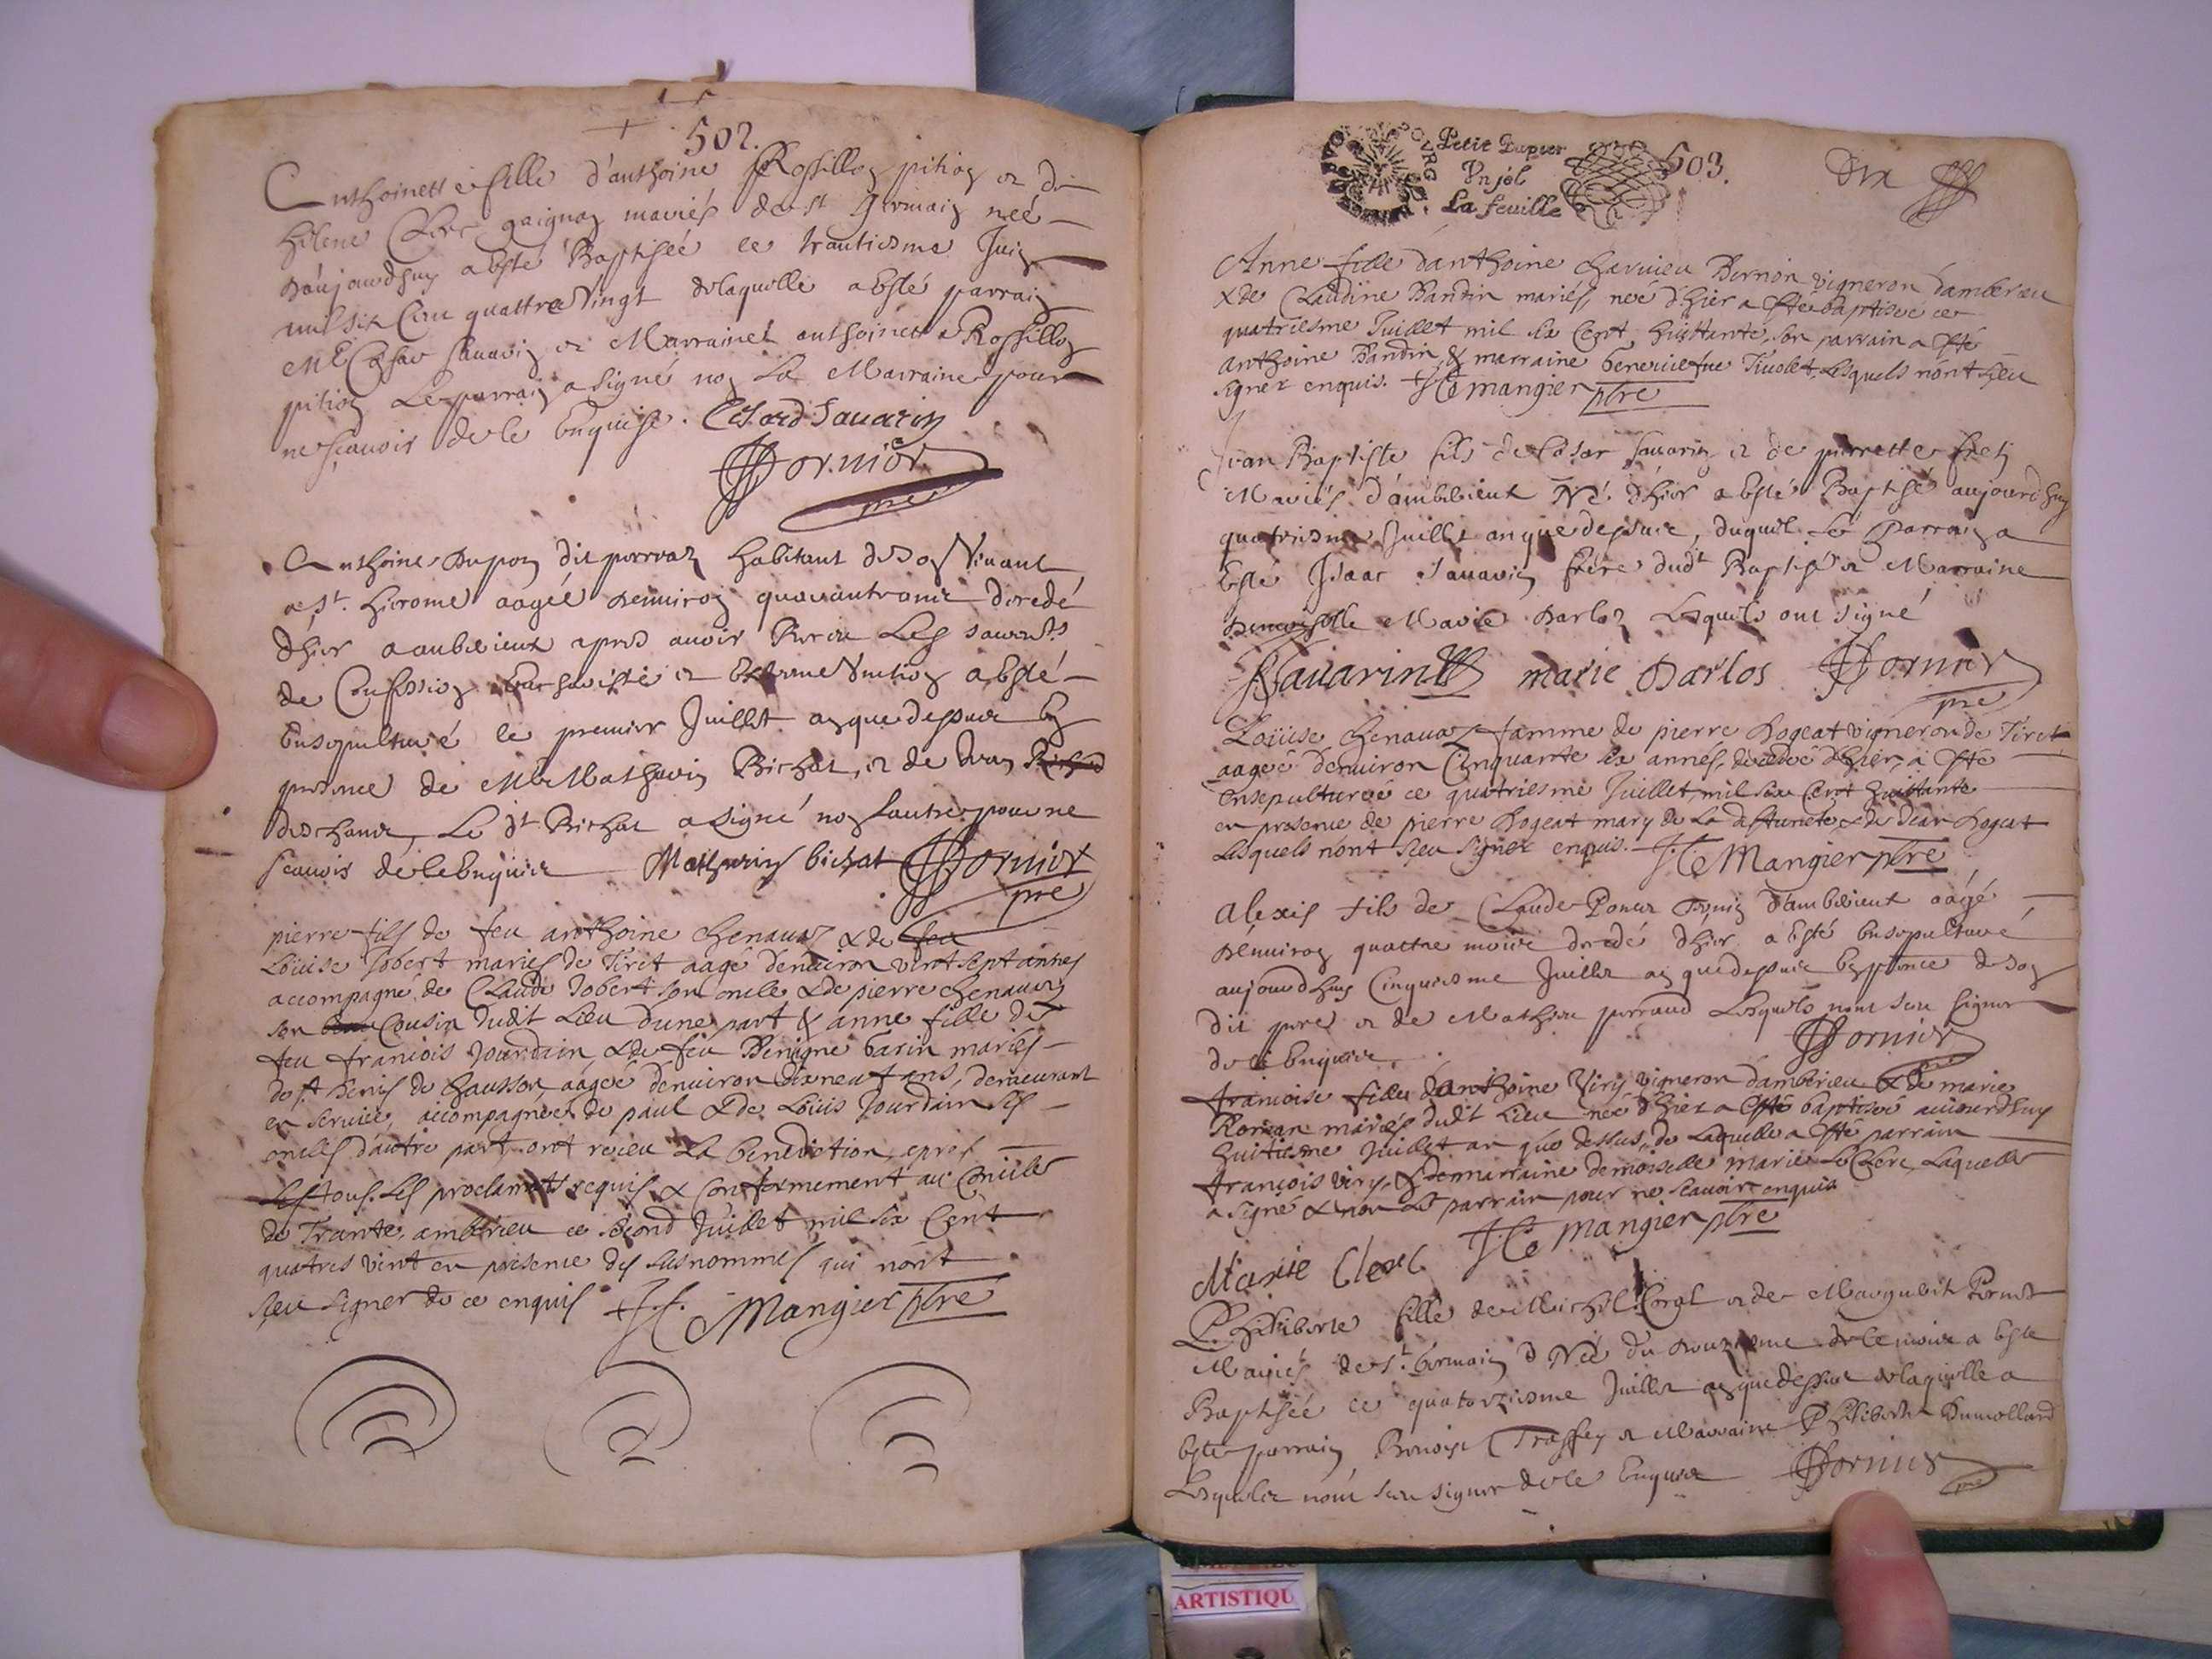 502.
Anthoinette fille d'anthoine Rossillon pition et de
helene Clerc gaignon mariés de St Germain neé
daujourdhuy a esté Baptiseé ce trantiesme Juin
mil six Cen quattre Vingt de laquelle a esté parrain
Me Cesar Sauarin et Marraine anthoinette Rossillon
pition Le parrain a signé non La Marraine pour
ne sçauoir de ce enquise. Cesard Sauarin
Dornier
pre
Anthoine Dupon dit perraz habitant de son Viuant
a St. hierome aagéé denuiron quarante decedé
dhier a anberieut apres auoir Receu Les
de Confession eucharistie et extreme Vnction a esté
ensepulturé le premier Juillet an que dessus en
presence de Me Mathurin Bichat, et de Jean Richard
deschaux, Le dt Bichat a signé non Lautre pour ne
scauoir de ce Enquis Mathurin bichat Dornier
pre
pierre fils de feu anthoine chenauaz & de feu
Loüise Jobert mariés de Tiret aagé denuiron vint sept annes
accompagné de Claude Jobert son oncle & de pierre chenauaz
son Cousin dudit Lieu dune part & anne fille de
feu francois Jourdain, & de feu Benigne barin mariés
de st Denis de chausson, aageé denuiron dixneuf ans, demeurant
en seruice, accompagneé de paul & de Loüis Jourdain ses
oncles d'autre part, ont receu La benediction, apres
tous Les proclamats requis & Conformement au Concile
de Trante, amberieu ce second Juillet mil six Cent
quatres vint en presence des susnommes qui n'ont
sceu signer de ce enquis Mangier pbre
Petit Papier
Vn sol
La feuille
503.
Anne fille d'anthoine Bernon vigneron damberieu
& de Claudine Bandin mariés, neé d'hier a esté baptiseé ce
quatriesme Juillet mil six Cent huittante, son parrain a esté
anthoine Bandin, & marraine Tiuolet, Lesquels n'ont sceu
signer enquis. Mangier pbre
Jean Baptiste fils de Cesar Sauarin et de pierrette
Mariés d'amberieut Né d'hier a esté Baptisé aujourdhuy
quatriesme Juillet an que dessus, duquel Le Parrain a
esté Isaac Sauarin frére dudt Baptisé et Marraine
Demoiselle Marie Darloz Lesquels ont signé
Sauarin marie Darlos Dornier
pre
Loüise chenauaz famme de pierre Dogeat vigneron de Tiret
aageé denuiron Cinquante six annés, decedeé d'hier, a esté
ensepultureé ce quatriesme Juillet, mil six Cent huittante
en presence de pierre Dogeat mary de La deffuncte & de Jean Dogeat
Lesquels n'ont sceu signer enquis. Mangier pbre
Alexis fils de Claude d'amberieut aagé
denuiron quattre mois decedé dhier a esté ensepulturé
aujourdhuy Cinquiesme Juillet an que dessus en presence de son
dit pere et de Mathieu perraud Lesquels nont sceu signer
de ce enquis. Dornier
francoise fille d'anthoine Viry vigneron damberieu & de marie
Roman mariés dudit Lieu neé d'hier a esté baptiseé aujourdhuy
huitiesme Juillet an que dessus, de Laquelle a esté parrain
françois viry, & marraine demoiselle marie Le Clerc, Laquelle
a signé & non Le parrain pour ne scauoir enquis
Mangier pbre
Marie Clerc
Philiberte fille de Michel et de Marguerite Pernet
Mariés de St. Germain Neé du douziesme de ce mois a Esté
Baptiseé ce quatorziesme Juillet an que dessus de laquelle a
este parrain Benoist et Marraine Philiberte Dumollard
Lesquels nont sceu signer de ce Enquis Dornier
pre
ARTISTIQU